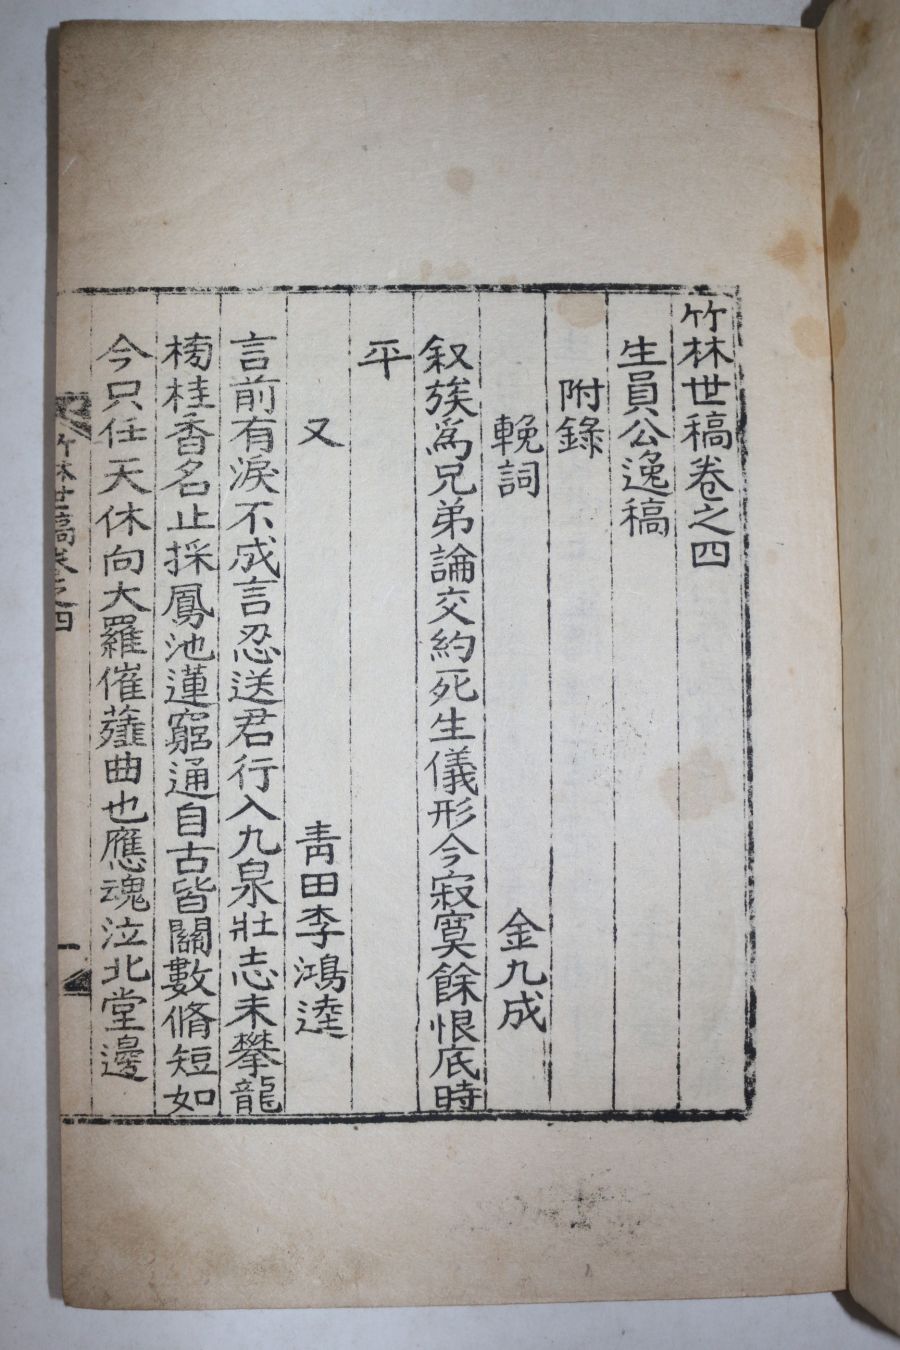 竹林世稿卷之四
生員公逸稿
附錄
輓詞 金九成
叙族爲兄弟論交約死生儀形今寂寞餘恨底時
平
又 靑田李鴻逵
言前有淚不成言忍送君行入九泉壯志未攀龍
桷桂香名止採鳳池蓮窮通自古皆關數脩短如
今只任天休向大羅催薤曲也應魂泣北堂邊
竹林世稿卷之四 一